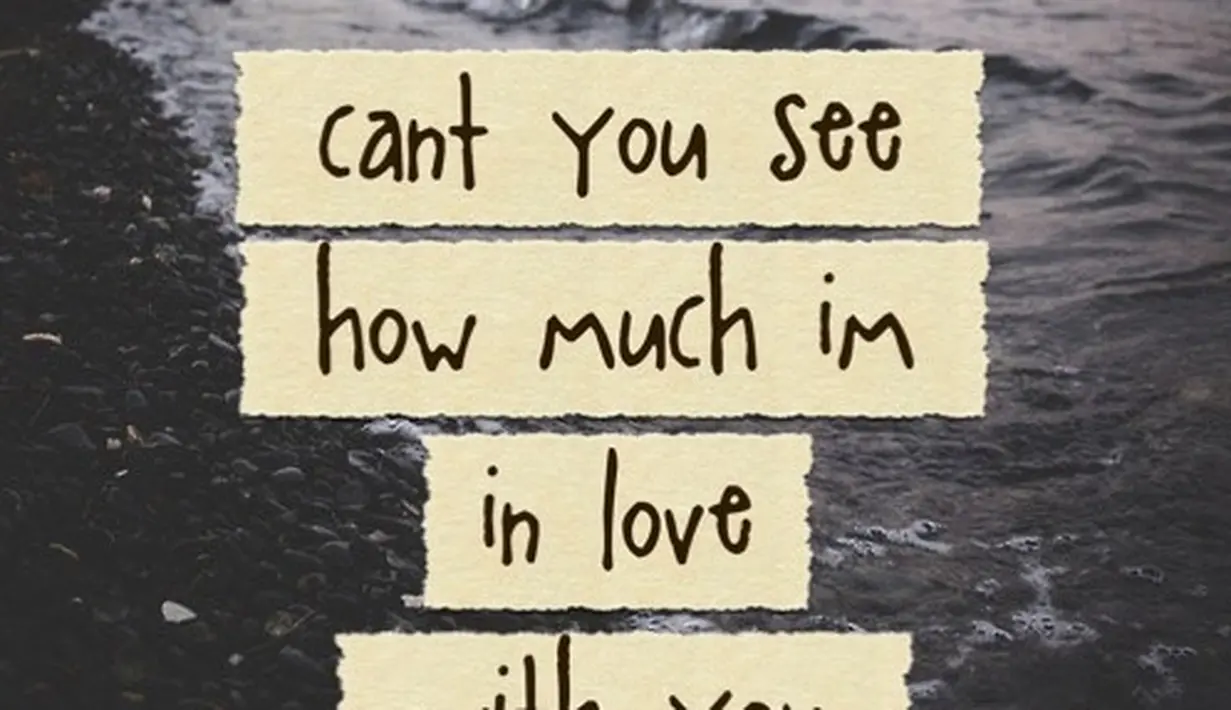 cant you see
how much im
in love
with you